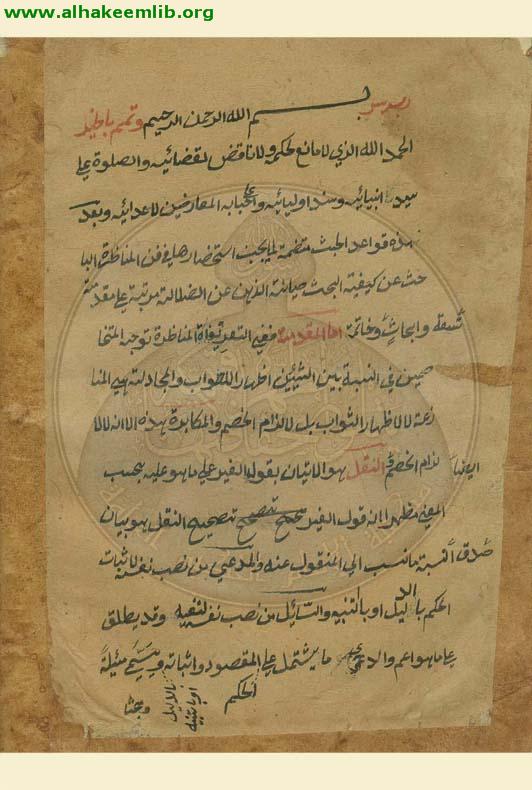 www.alhakeemlib.org
رب يسر بسم الله الرحمن الرحيم وتمم بالخير
الحمد الله الذي لا مانع لحكمه ولا ناقض لقضائيه والصلوة علي
سيد انبيائيه وسند اوليائيه واحبابه المعارضين لاعدائيه وبعد
هذه قواعد البحث متضمة لما يجب استحضارها في فن المناظرة البا
حث عن كيفية البحث صيانة للذهن عن الضلالة مرتبة علي مقدمة
تسعة وابحاث وخاتمة اما المقدمة ففي التعريفات المناظرة توجه المتخا
صمين في النسبة بين الشيئين اظهارا للصواب والمجادلة هي المنا
زعة لا لاظهار الثواب بل لالزام الخصم والمكابرة هذه الا انه لا لا
لزام الخصم ايضا والنقل هو الاتيان بقول الغير علي ما هو عليه بحسب
المعني مظهرا انه قول الغير تصحيح النقل هو بيان
صدق نسبة ما نسب الي المنقول عنه والمدعي من نصب نفسه لاثبات
الحكم بالدليل او بالتنبيه والسائل من نصب نفسه لنفيه وقد يطلق
علي ما هو اعم والدعوي ما يشتمل علي المقصود اثباته ويسمي مسئلة
الحكم بالدليل او بالتنبيه
ومبحثا